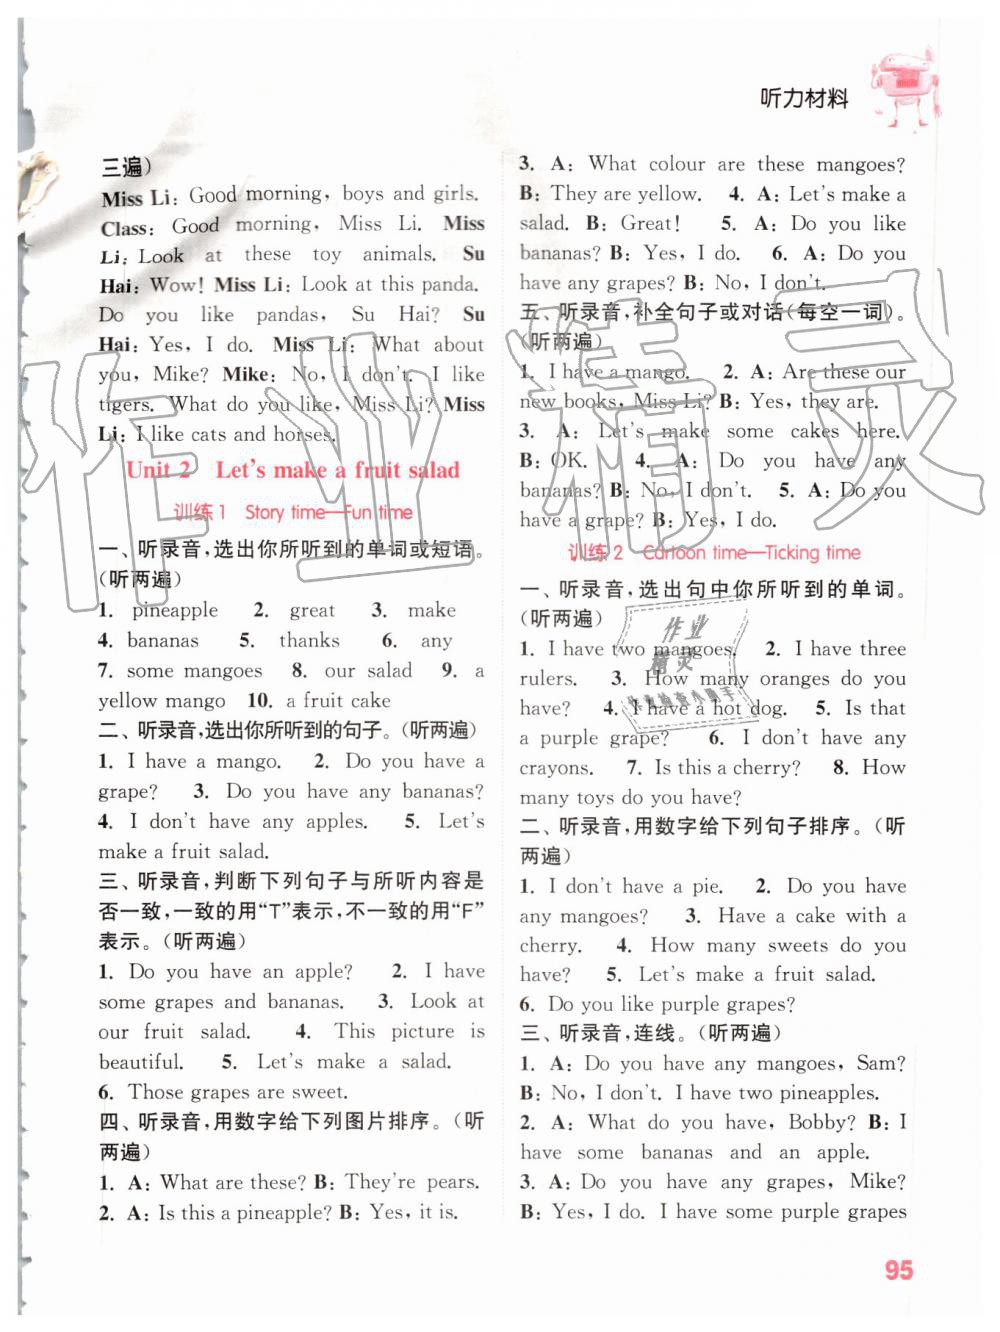 听力材料
三遍)
Miss Li: Good morning, boys and girls.
Class: Good morning, Miss Li. Miss
Li: Look at these toy animals. Su
Hai: Wow! Miss Li: Look at this panda.
Do you like pandas, Su Hai? Su
Hai: Yes, I do. Miss Li: What about
you, Mike? Mike: No, I don't. I like
tigers. What do you like, Miss Li? Miss
Li: I like cats and horses.
Unit 2 Let's make a fruit salad
训练1 Story time—Fun time
一、听录音,选出你所听到的单词或短语。
(听两遍)
1. pineapple 2. great 3. make
4. bananas 5. thanks 6. any
7. some mangoes 8. our salad 9. a
yellow mango 10. a fruit cake
二、听录音,选出你所听到的句子。(听两遍)
1. I have a mango. 2. Do you have a
grape? 3. Do you have any bananas?
4. I don't have any apples. 5. Let's
make a fruit salad.
三、听录音,判断下列句子与所听内容是
否一致,一致的用“T”表示,不一致的用“F”
表示。(听两遍)
1. Do you have an apple? 2. I have
some grapes and bananas. 3. Look at
our fruit salad. 4. This picture is
beautiful. 5. Let's make a salad.
6. Those grapes are sweet.
四、听录音,用数字给下列图片排序。(听
两遍)
1. A: What are these? B: They're pears.
2. A: Is this a pineapple? B: Yes, it is.
3. A: What colour are these mangoes?
B: They are yellow. 4. A: Let's make a
salad. B: Great! 5. A: Do you like
bananas? B: Yes, I do. 6. A: Do you
have any grapes? B: No, I don't.
五、听录音,补全句子或对话(每空一词)。
(听两遍)
1. I have a mango. 2. A: Are these our
new books, Miss Li? B: Yes, they are.
3. A: Let's make some cakes here.
B: OK. 4. A: Do you have any
bananas? B: No, I don't. 5. A: Do you
have a grape? B: Yes, I do.
训练2 Cartoon time—Ticking time
一、听录音,选出句中你所听到的单词。
(听两遍)
1. I have two mangoes. 2. I have three
rulers. 3. How many oranges do you
have? 4. I have a hot dog. 5. Is that
a purple grape? 6. I don't have any
crayons. 7. Is this a cherry? 8. How
many toys do you have?
二、听录音,用数字给下列句子排序。(听
两遍)
1. I don't have a pie. 2. Do you have
any mangoes? 3. Have a cake with a
cherry. 4. How many sweets do you
have? 5. Let's make a fruit salad.
6. Do you like purple grapes?
三、听录音,连线。(听两遍)
1. A: Do you have any mangoes, Sam?
B: No, I don't. I have two pineapples.
2. A: What do you have, Bobby? B: I
have some bananas and an apple.
3. A: Do you have any grapes, Mike?
B: Yes, I do. I have some purple grapes
95
作业精灵
作业
精灵
作业检查小助手